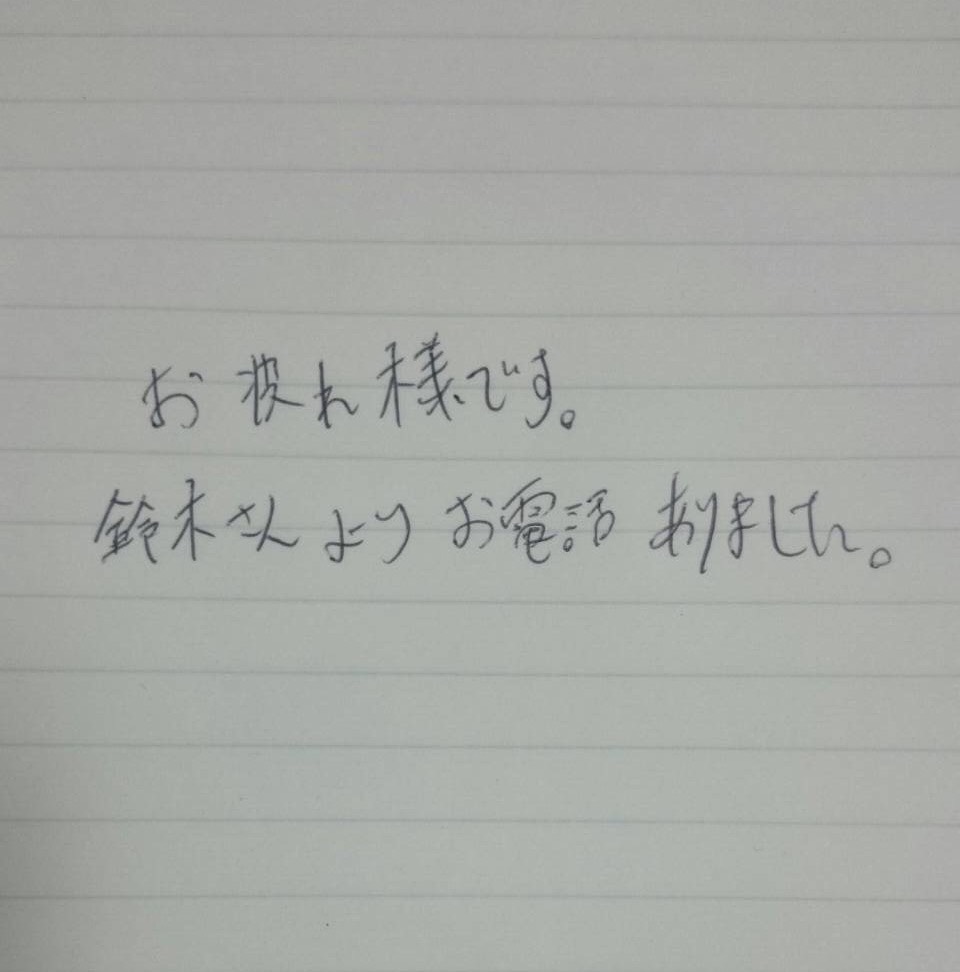 お疲れ様です。
鈴木さんよりお電話ありました。